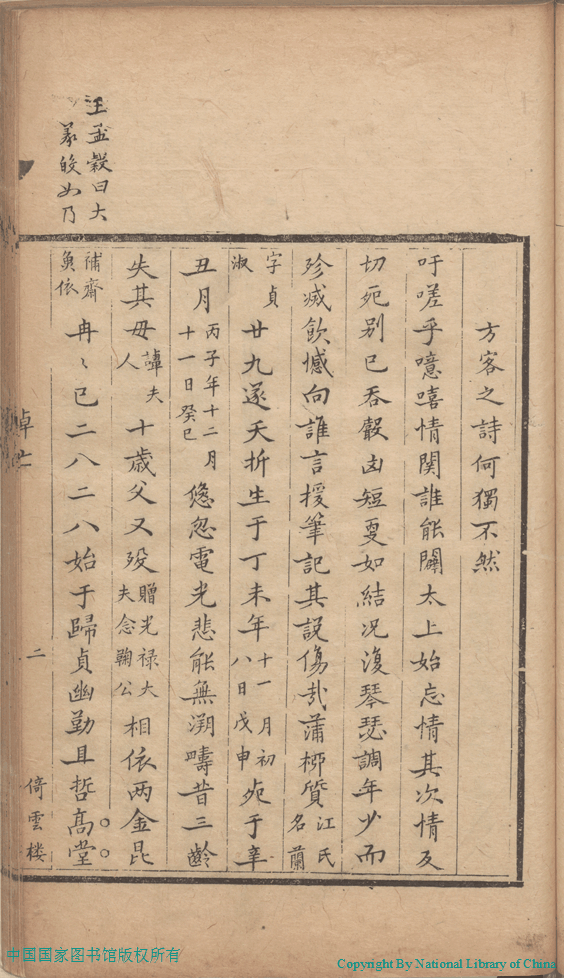 汪孟縠曰大
義皎如乃
方客之詩何獨不然
吁嗟乎噫嘻情関誰能闢太上始忘情其次情及
切死别已吞聲凶短更如結况復琴瑟調年少而
殄滅飲憾向誰言援筆記其説傷哉蒲柳質江氏名蘭
字貞淑廿九遂夭折生于丁未年十一月初八日戊申死于辛
丑月丙子年十二月十一日癸巳悠忽電光悲能無溯疇昔三齡
失其母夫人十歲父又殁贈光禄大夫念鞠公相依两金昆
補齋魚依冉〻已二八二八始于歸貞幽勤且哲高堂
二
倚雲楼
中国国家图书馆版权所有
Copyright By National Library of China